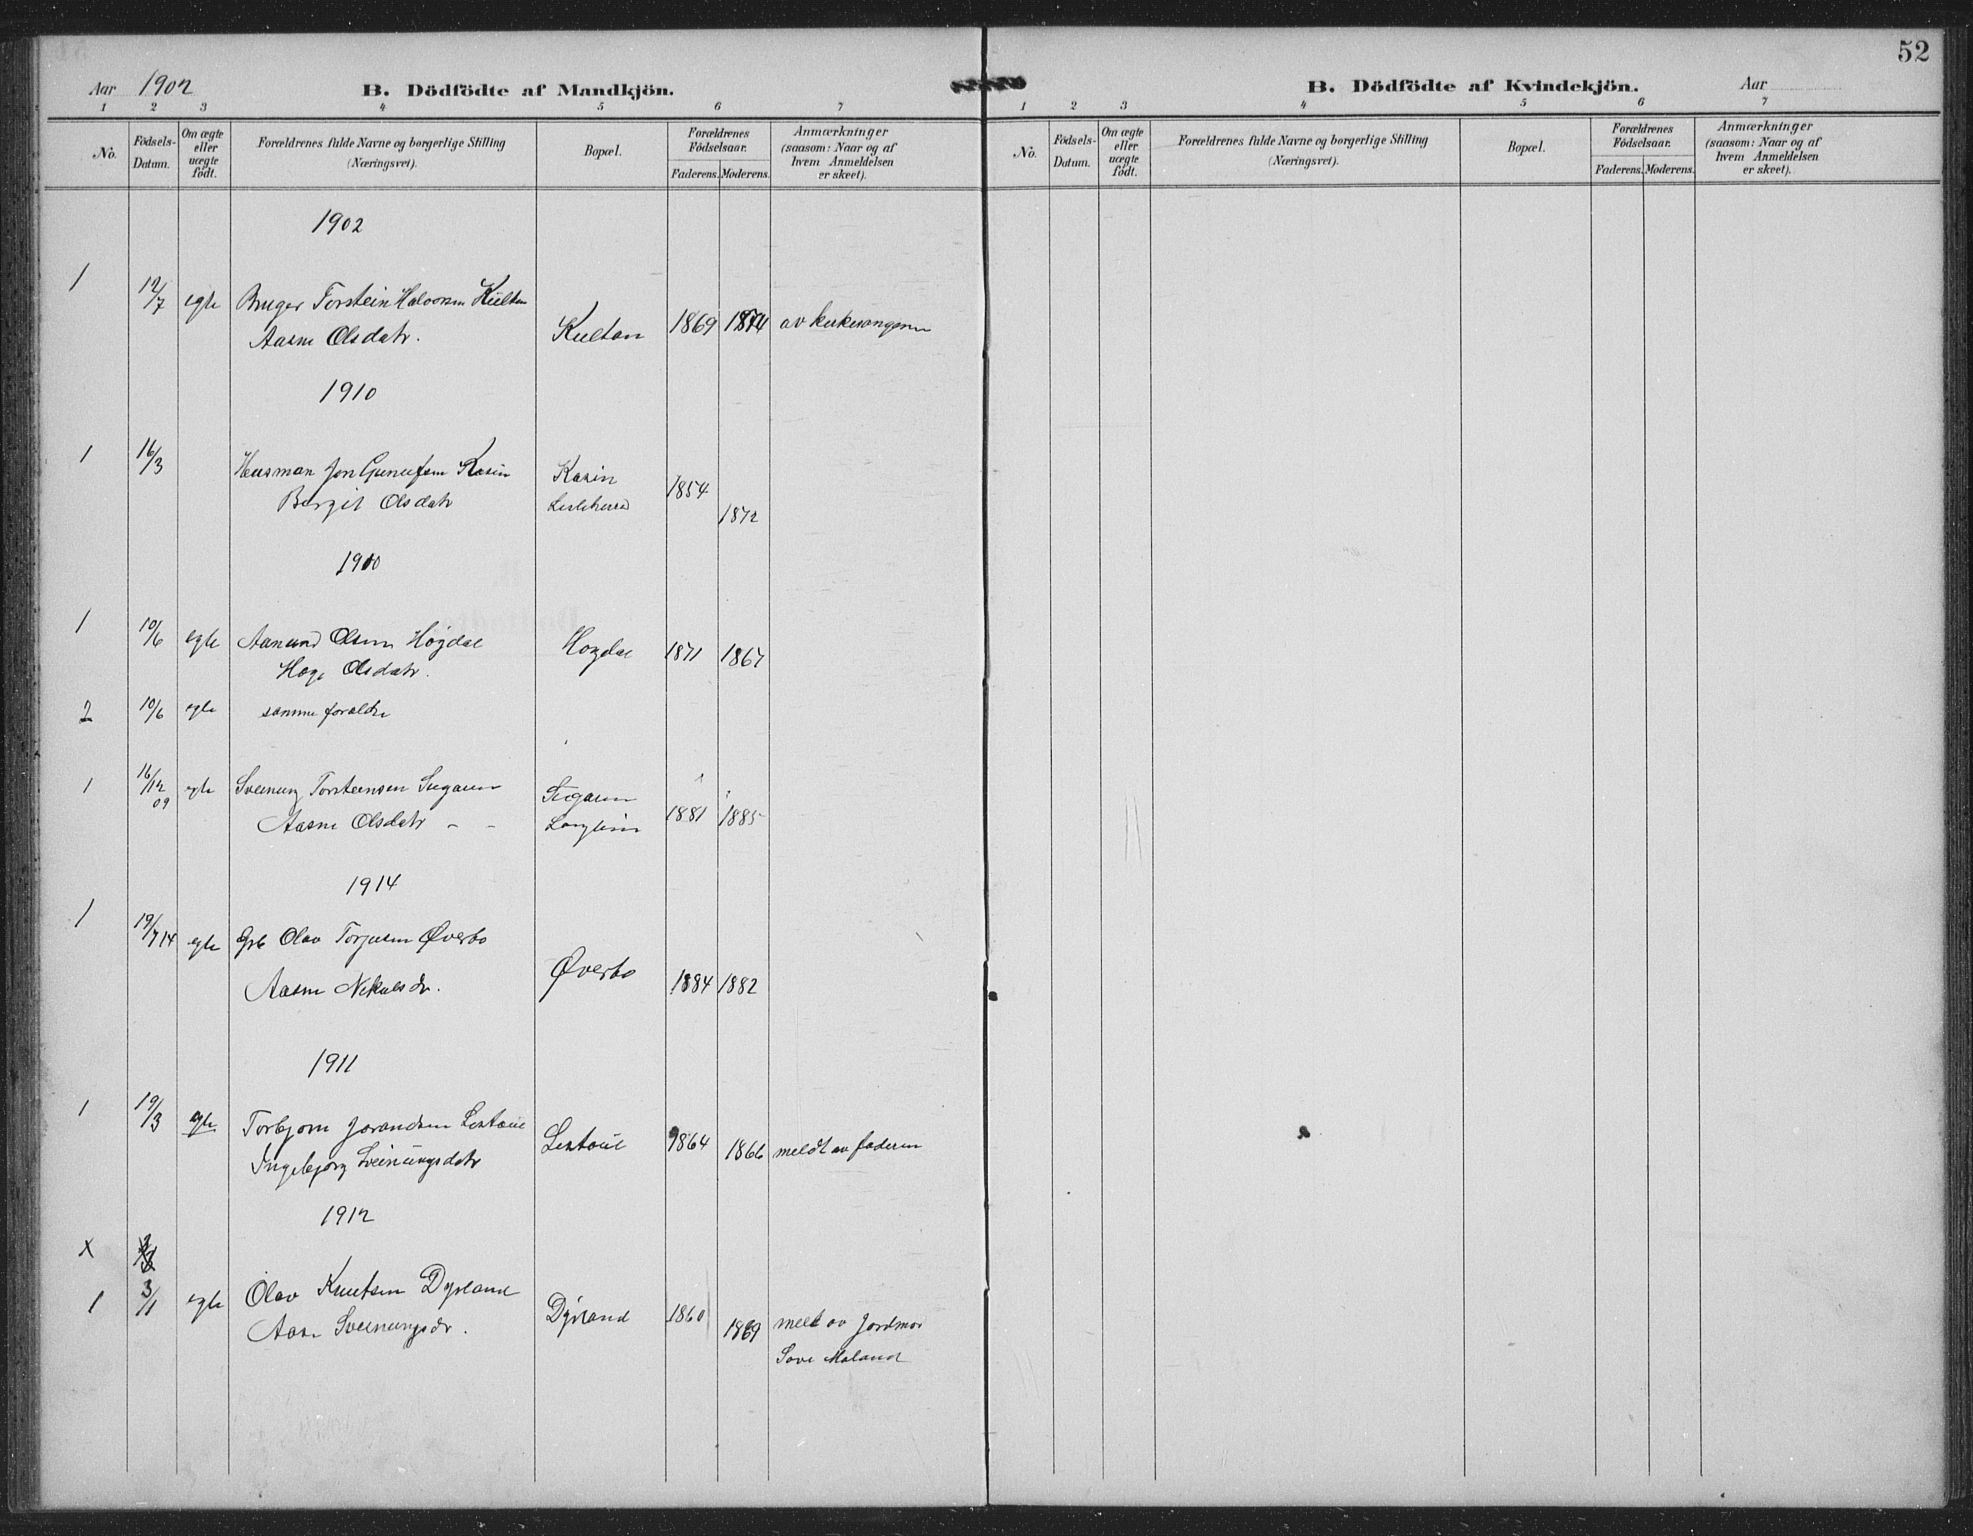 52
Aar 1902 B. Dödfödte af Mandkjön.
1 2 3 4 5 6 7
No. Födsels-Datum. Om ægte eller uægte födt. Forældrenes fulde Navne og borgerlige Stilling (Næringsvei). Bopæl. Forældrenes Födselsaar. Faderens. Moderens. Anmærkninger (saasom: Naar og af hvem Anmeldelsen er skeet).
1902
1 12/7 egte Bruger Torstein Halvorsen Kultan Kultan 1869 1874 av
Aasne Olsdatr.
1910
1 16/3 Husman Jon Gunufsen Kasin Kasin 1854
Bergit Olsdatr 1872
1910
1 10/6 egte Aanund Olsen Høgdal Høgdal 1871 1867
Hæge Olsdatr.
2 10/6 egte samme foraldre
1 16/12 09 egte Sveinung Torsteinsen 1881 1885
Aasne Olsdatr - -
1914
1 19/7 14 egte Grb Olav Torjusen Øverbø Øverbø 1884 1882
Aasne Nikulsdr.
1911
1 19/3 egte Torbjørn Jørandsen 1864 1866 meldt av faderen
Ingebjørg Sveinungsdatr
1912
x
1 3/1 egte Olav Knutsen Dyrland Dyrland 1860 1869 melt av Jordmor
Aase Sveinungsdr.
Maland
B. Dödfödte af Kvindekjön. Aar
1 2 3 4 5 6 7
No. Födsels-Datum. Om ægte eller uægte födt. Forældrenes fulde Navne og borgerlige Stilling (Næringsvei). Bopæl. Forældrenes Födselsaar. Faderens. Moderens. Anmærkninger (saasom: Naar og af hvem Anmeldelsen er skeet).